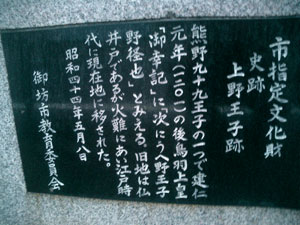 市指定文化財
史跡
上野王子跡
熊野九十九王子の一つで建仁
元年(一二〇一)の後鳥羽上皇
「御幸記」に次にうへ野王子
野径也」とみえる。旧地は仏
井戸であるが火難にあい江戸時
代に現在地に移された。
昭和四十四年五月八日
御坊市教育委員会